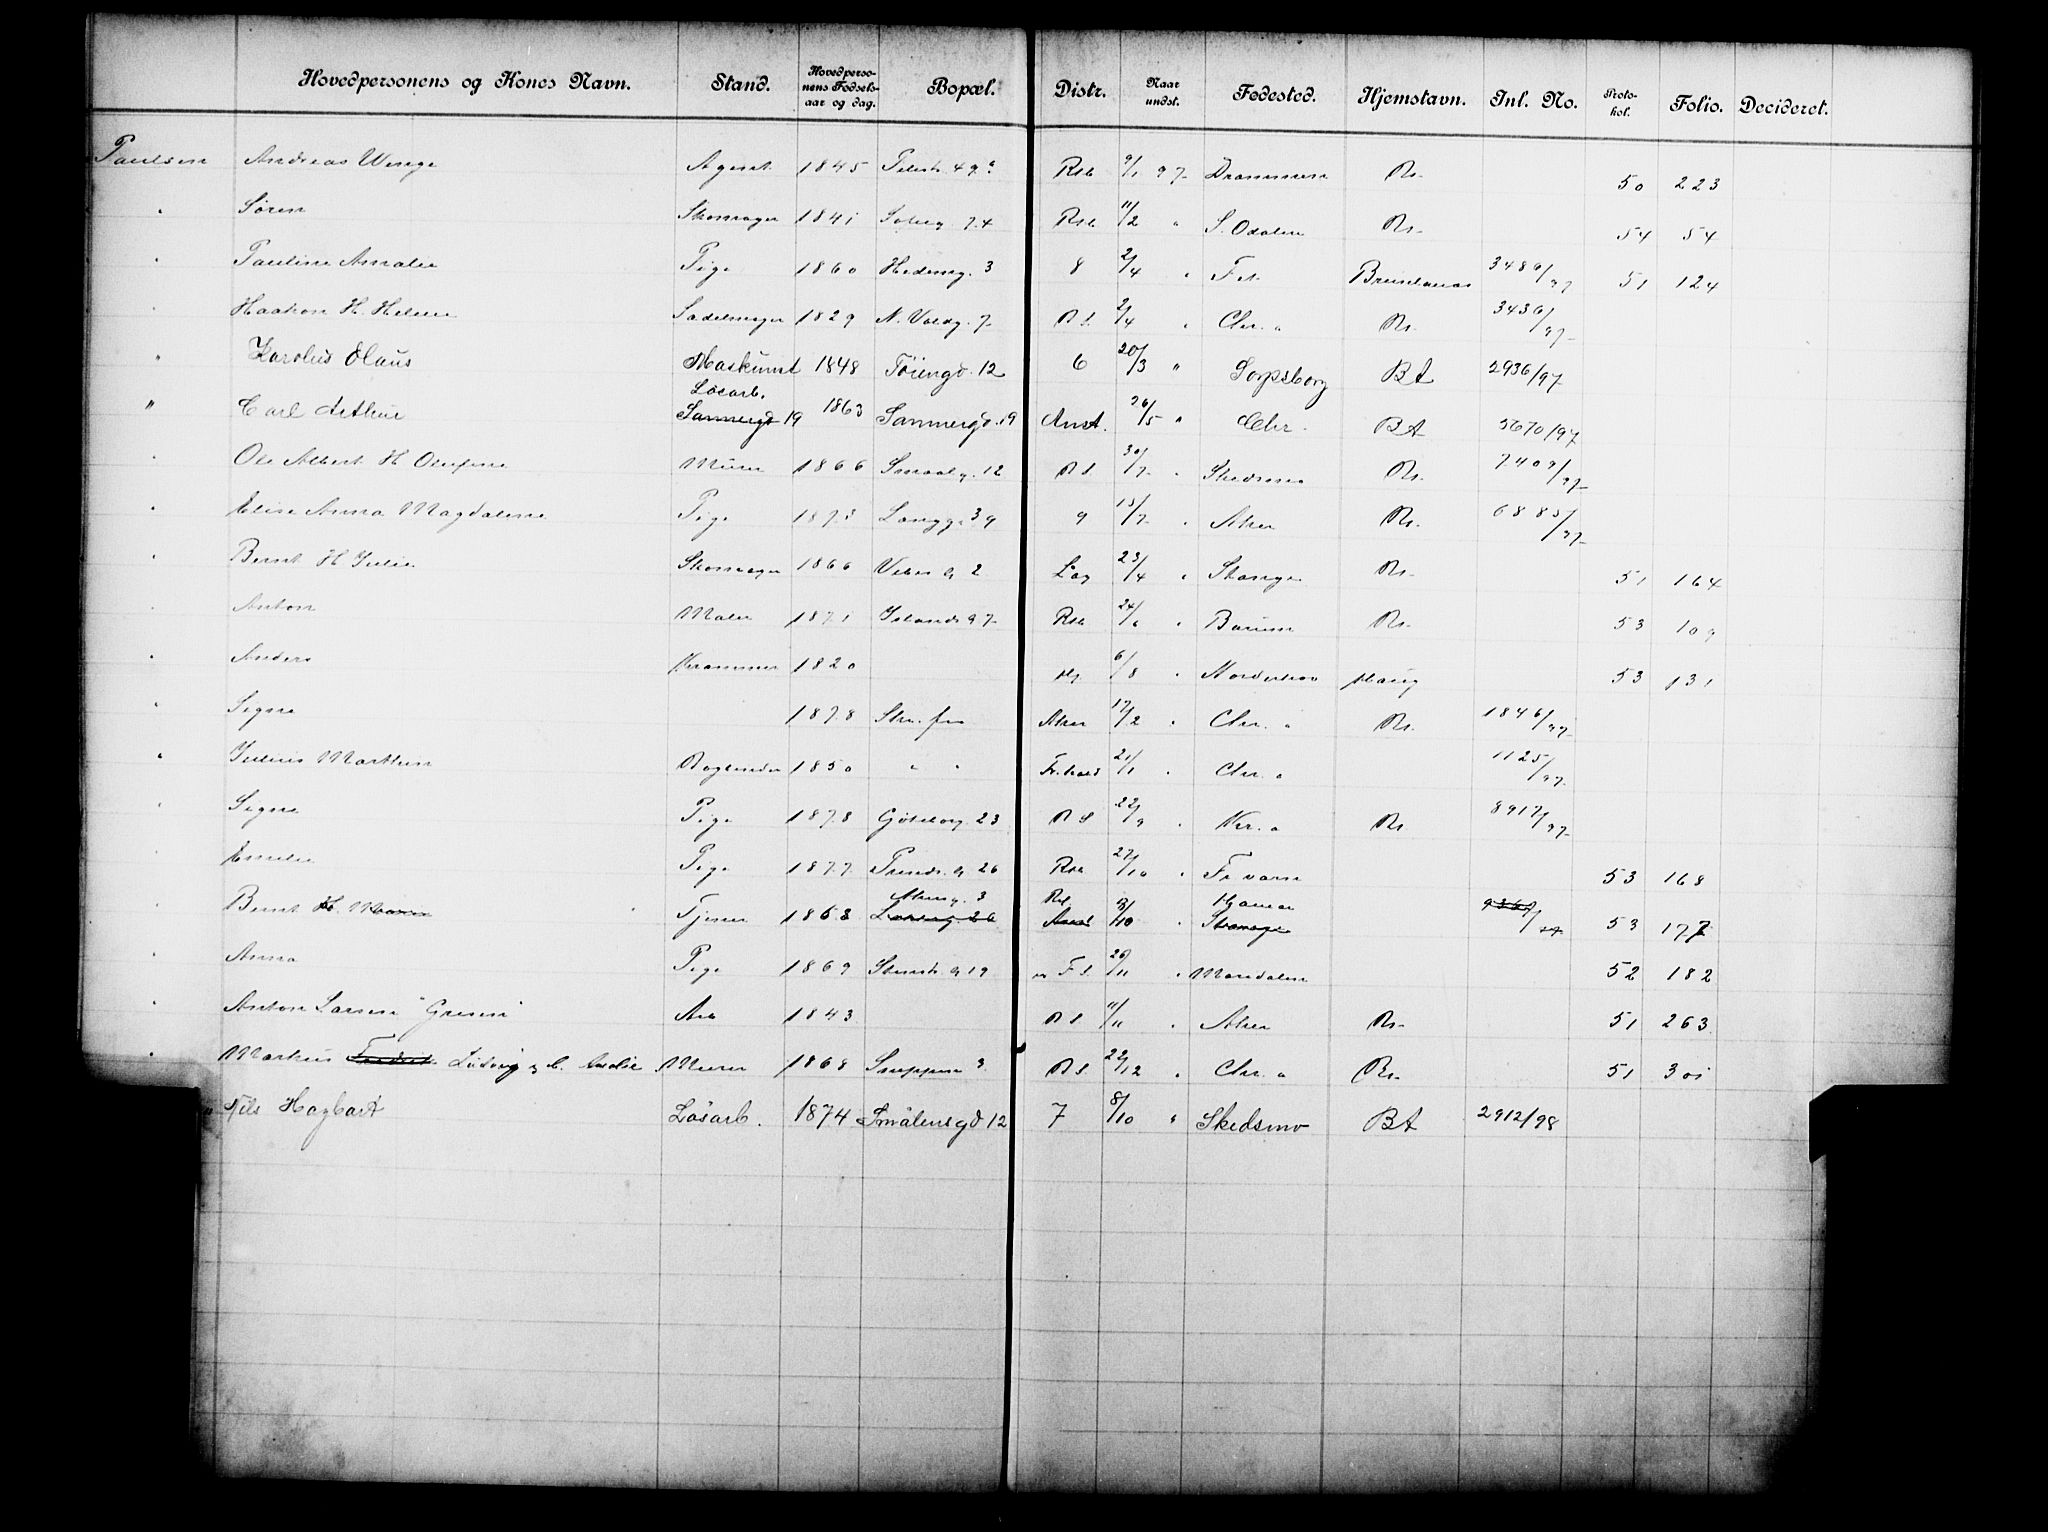 Hovedpersonens og Kones Navn. Stand. Hovedpersonens Fødselsaar og dag. Bopæl. Distr. Naar undst. Fødested. Hjemstavn. Jnl. No. Protokol. Folio. Decideret.
Paulsen Andreas Wenge Agent 1845 49 Rst 9/1 97 Drammen Rs. 50 223
" Søren Skomager 1841 74 Rst 11/2 " S. Odalen Rs. 54 54
" Pauline Amalie Pige 1860 Hedemg. 3 8 2/4 " Fet 3489/97 51 124
" Haakon H. Helene Sadelmager 1829 N. Voldg. 7 2/4 " Chr. a Rs. 3436/97
" Karolus Olaus Maskinist 1848 Töiengd. 12 6 20/3 " Sarpsborg BA 2936/97
" Carl Arthur Løsarb. Sannergd 19 1863 Sannergd. 19 Anst. 26/5 " Chr. BA 5670/97
" Ole Albert H Olufine Murer 1866 Smaalg. 12 30/7 " Skedsmo Rs. 7409/97
" Elise Anna Magdalene Pige 1873 Langg. 39 9 15/7 " Aker Rs. 6885/97
" Bernt H Julie Skomager 1866 Vibes g 2 Lag 23/4 " Stange Rs. 51 164
" Anton Maler 1871 97 Rst 24/6 " Bærum Rs. 53 109
" Anders Kræmmer 1820 6/8 " Norderhov Haug 53 131
" Signe 1878 Aker 17/2 " Chr. a Rs. 1846/97
" Julius Marthin Bogbinder 1850 " " 21/1 " Chr. a 1125/97
" Signe Pige 1878 Göteborg. 23 22/9 " Kr. a Rs 8917/97
" Emilie Pige 1877 Trondh. g 26 Rst 27/10 " Fr. værn 53 168
" Bernt H. Marie Tjener 1863 Akersg. 3 /10 Hamar Stange 53 177
" Anna Pige 1869 Stenstr. g 19 20/11 " Maridalen 52 182
" Anton Larsen "Grønn" Arb 1843 11/11 " Aker Rs. 51 263
" Markus Ludvig Murer 1868 3 22/12 " Chr. a Rs. 51 301
" Nils Hagbart Løsarb. 1874 Smålensgd 12 7 8/10 " Skedsmo BA 2912/98